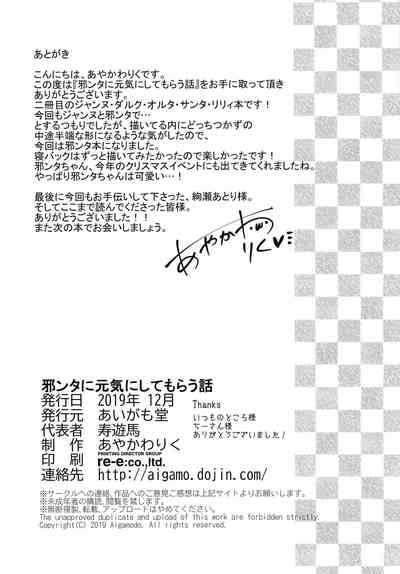 あとがき
こんにちは、あやかわりくです。
この度は『邪ンタに元気にしてもらう話』をお手に取って頂き
ありがとうございます。
二冊目のジャンヌ・ダルク・オルタ・サンタ・リリィ本です!
今回もジャンヌと邪ンタで…
とするつもりでしたが、描いてる内にどっちつかずの
中途半端な形になるような気がしたので、
今回は邪ンタ本になりました。
寝バックはずっと描いてみたかったので楽しかったです!
邪ンタちゃん、今年のクリスマスイベントにも出てきてくれましたね。
やっぱり邪ンタちゃんは可愛い…!
最後に今回もお手伝いして下さった、絢瀬あとり様。
そしてここまで読んでくださった皆様。
ありがとうございました!!
また次の本でお会いしましょう。
あやかわりく
邪ンタに元気にしてもらう話
発行日 2019年 12月
発行元 あいがも堂
代表者 寿遊馬
制作 あやかわりく
PRINTING DIRECTOR GROUP
印刷 re-e:co.,ltd.
連絡先 http://aigamo.dojin.com/
Thanks
いつものところ様
ちーさん様
ありがとうございました!
※サークルへの連絡、作品へのご意見ご感想は上記サイトよりお願いします。
※未成年者の購読、閲覧を禁じます。
※無断複製、転載、アップロードはやめてください。
The unapproved duplicate and upload of this work are forbidden strictly.
Copyright(C) 2019 Aigamodo. All rights reserved.